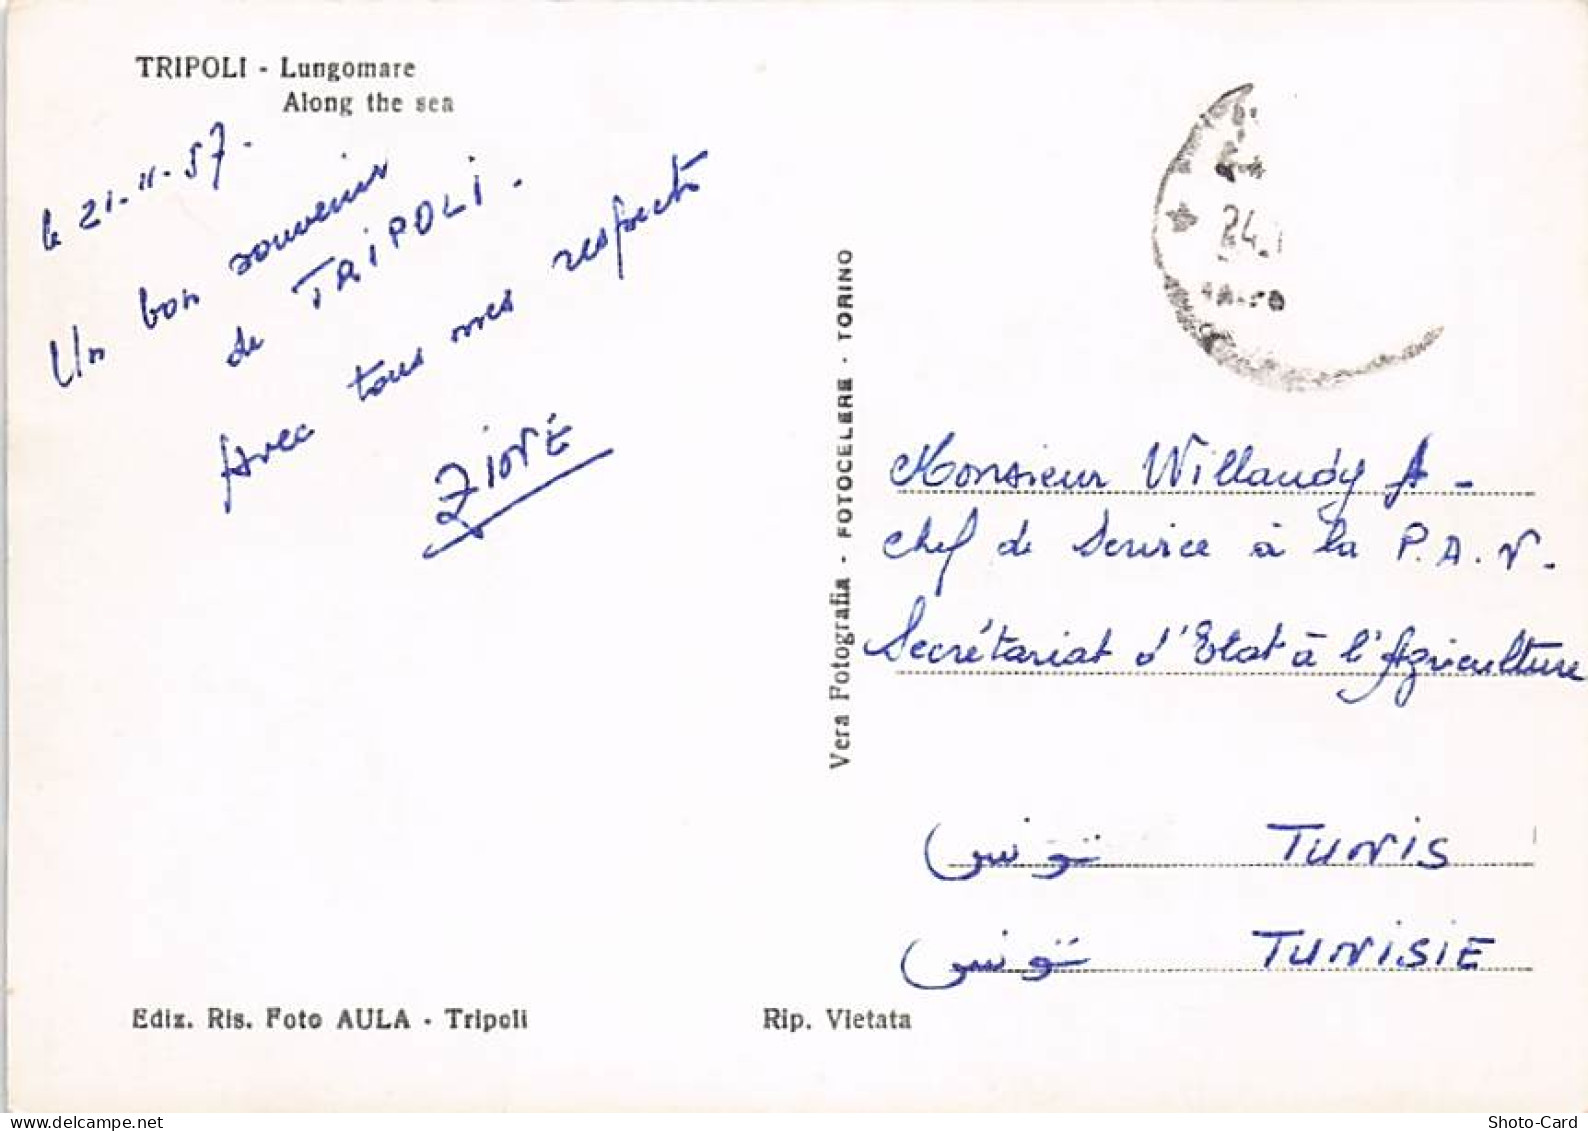 TRIPOLI - Lungomare
Along the sea
le 21-11-57-
Un bon souvenir
de TRIPOLI.
Avec tous mes respects
ZIONÉ
Vera Fotografia - FOTOCELERE - TORINO
24.
Monsieur Willaudy A-
Chef de Service à la P.A.V.
Secrétariat d'Etat à l'Agriculture
TUNIS تونس
TUNISIE تونس
Ediz. Ris. Foto AULA - Tripoli
Rip. Vietata
delcampe.net
Shoto-Card